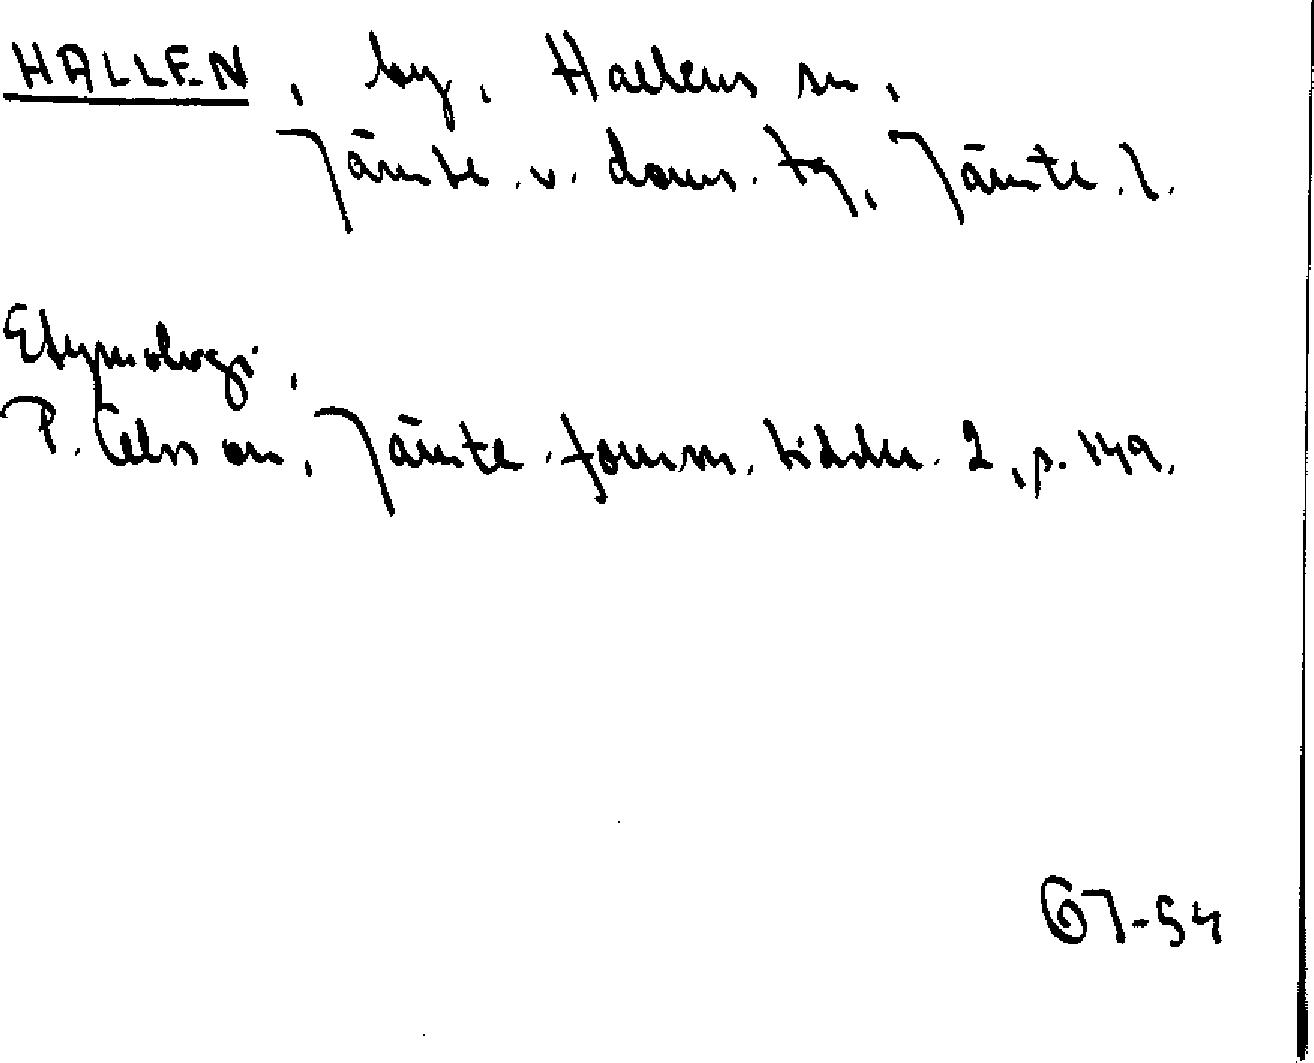 HALLEN, by, Hallens sn,
Jämtl. v. doms. tg, Jämtl. l.
Etymologi,
P. Olsson, Jämtl. fornm. tidskr. 2, p. 149.
GT-54